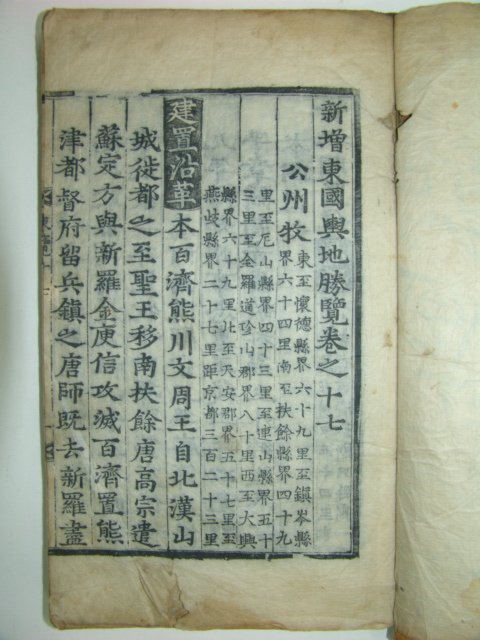 新增東國輿地勝覽卷之十七
公州牧
東至懷德縣界六十九里至鎭岑縣
界六十四里南至扶餘縣界四十九
里至尼山縣界四十三里至連山縣界五十
三里至全羅道珍山郡界八十里西至大興
縣界六十九里北至天安郡界五十七里至
燕歧縣界二十七里距京都三百二十三里
建置沿革本百濟熊川文周王自北漢山
城徙都之至聖王移南扶餘唐高宗遣
蘇定方與新羅金庾信攻滅百濟置熊
津都督府留兵鎮之唐師旣去新羅盡